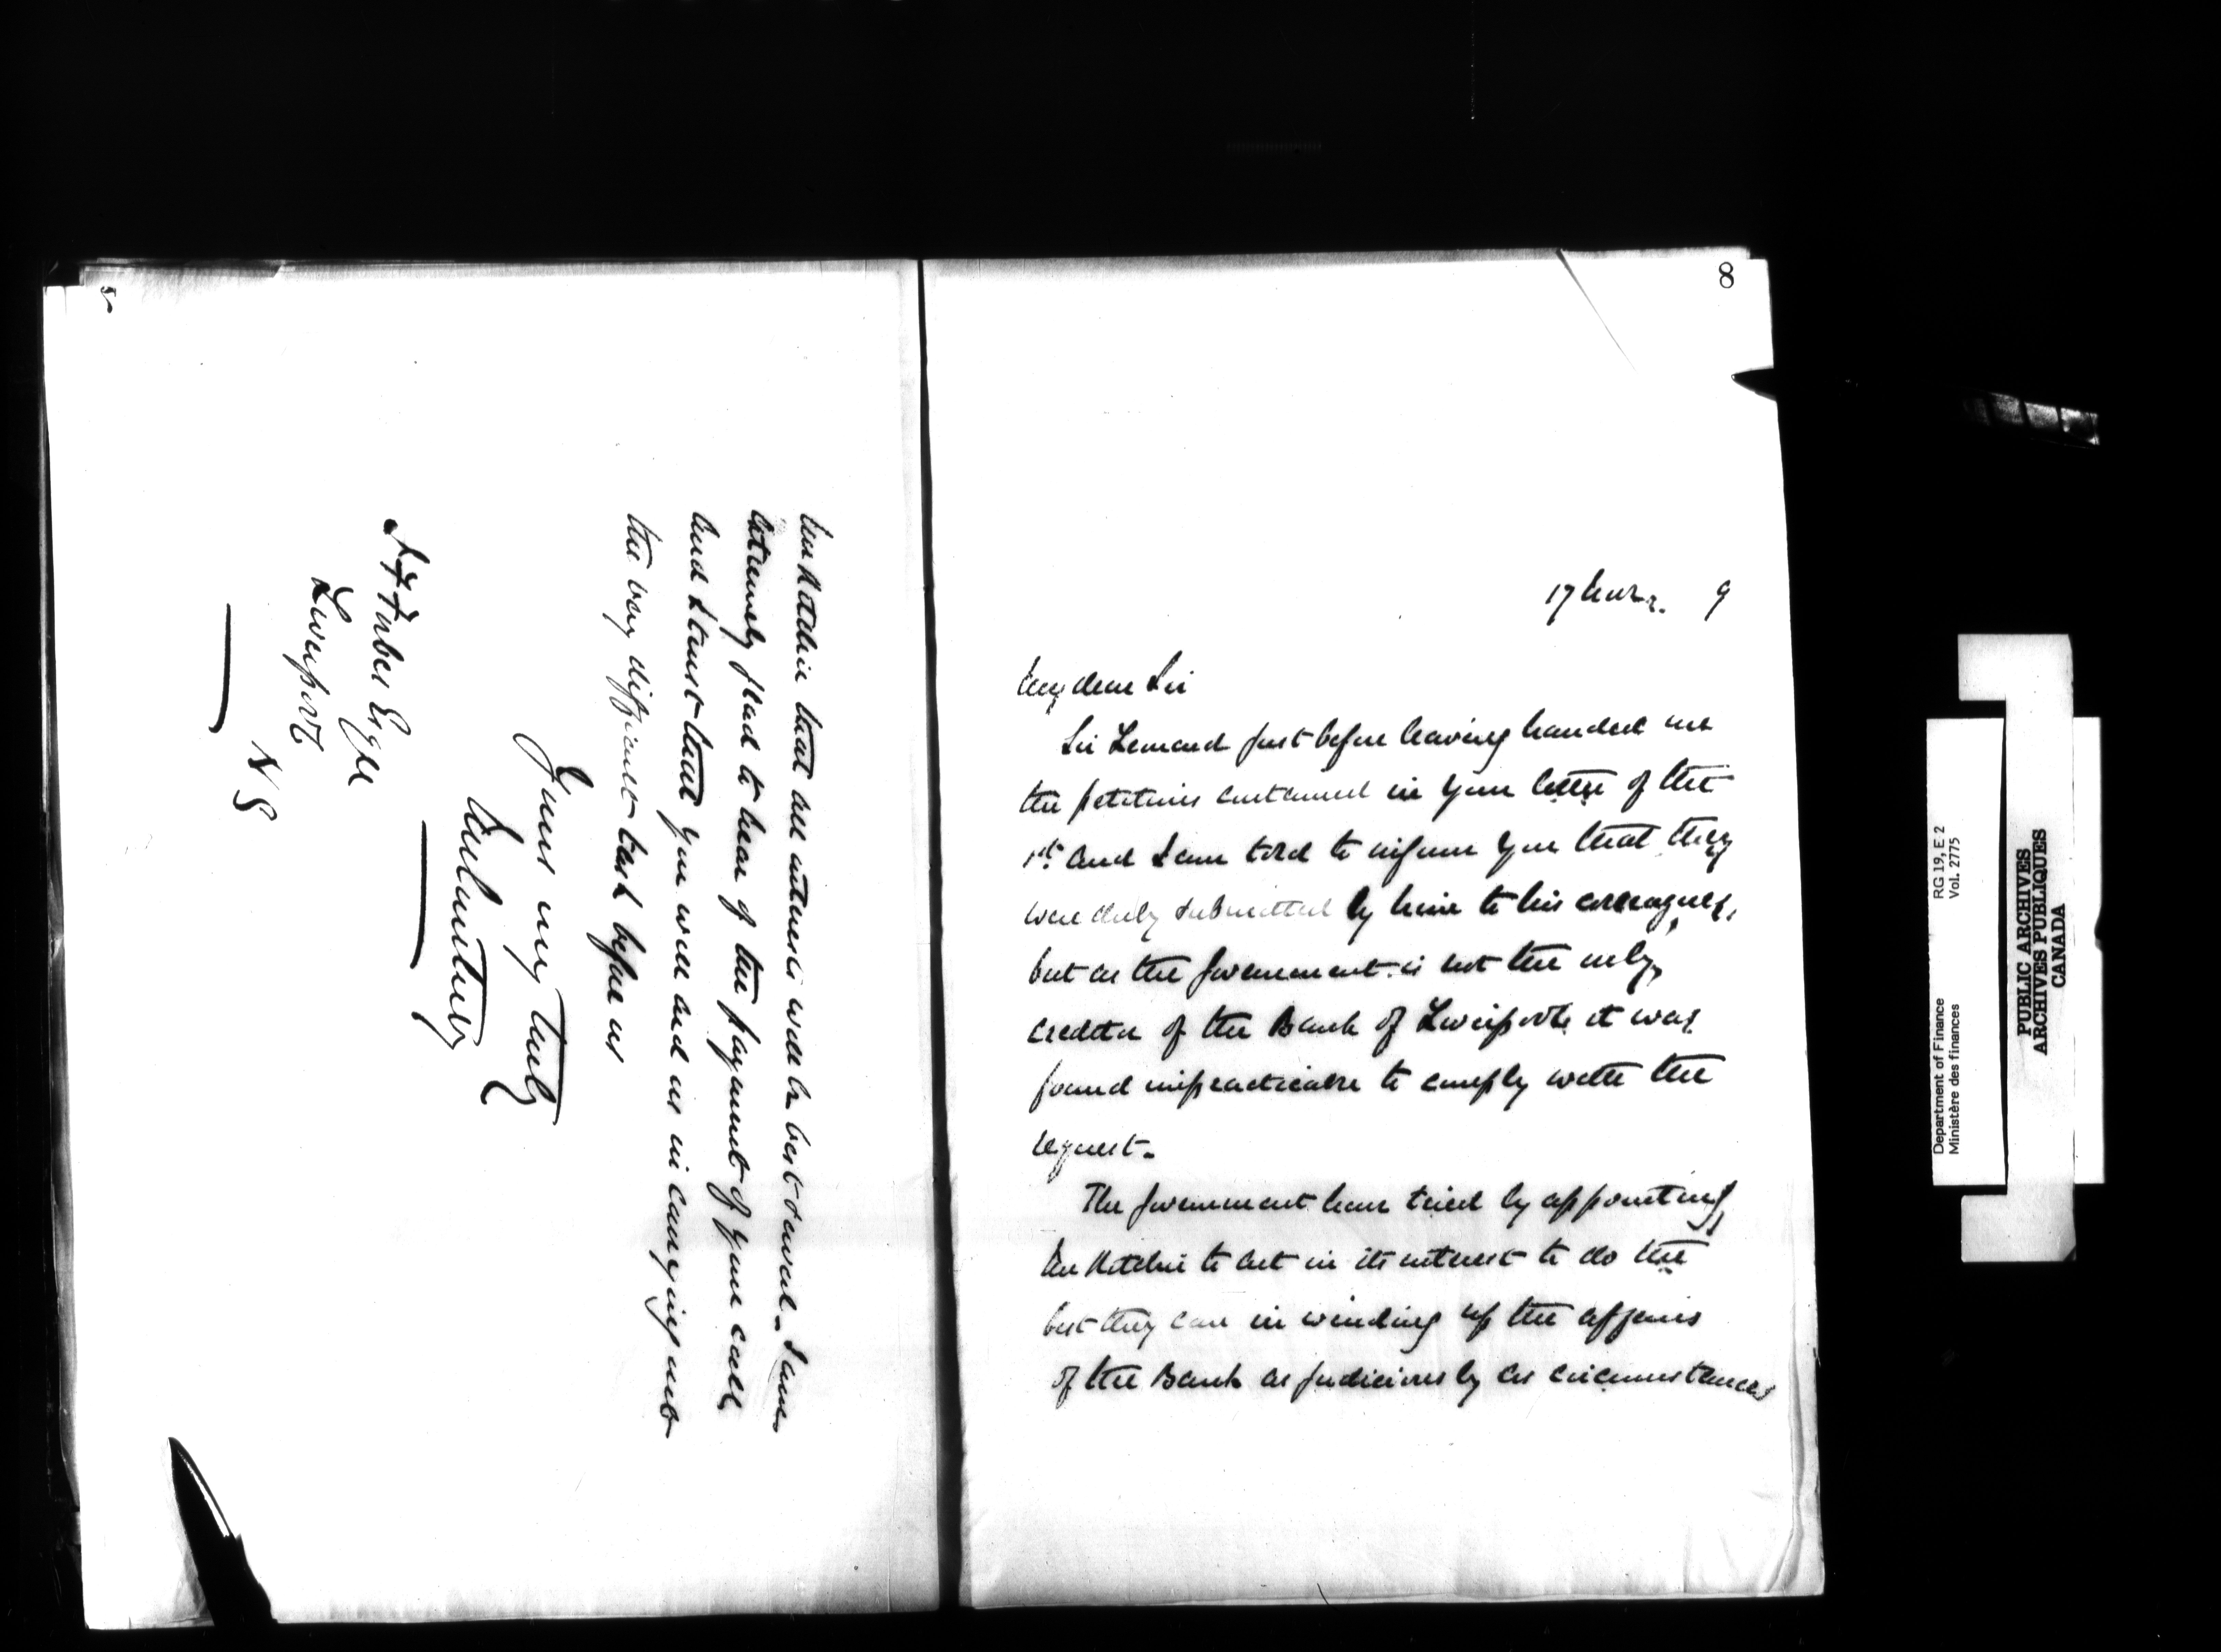 8
17 9
My dear Sir
Sir Leonard just before leaving handed me
the petitions contained in your letter of the
1st and I am told to inform you that they
were duly submitted by him to his colleagues,
but as the Government is not the only
creditor of the Bank of Liverpool it was
found impracticable to comply with the
request.
The Government have tried by appointing
Mr Ritchie to act in its interest to do the
best they can in winding up the affairs
of the Bank as judiciously as circumstances
Mr Ritchie that all interests will be best served. I am
extremely glad to hear of the payment of your call
and I trust that you will aid us in carrying out
the very difficult task before us
Yours very truly
J M Courtney
F Forbes Esqre
Liverpool
N S
Department of Finance
Ministère des finances
RG 19, E 2
Vol. 2775
PUBLIC ARCHIVES
ARCHIVES PUBLIQUES
CANADA